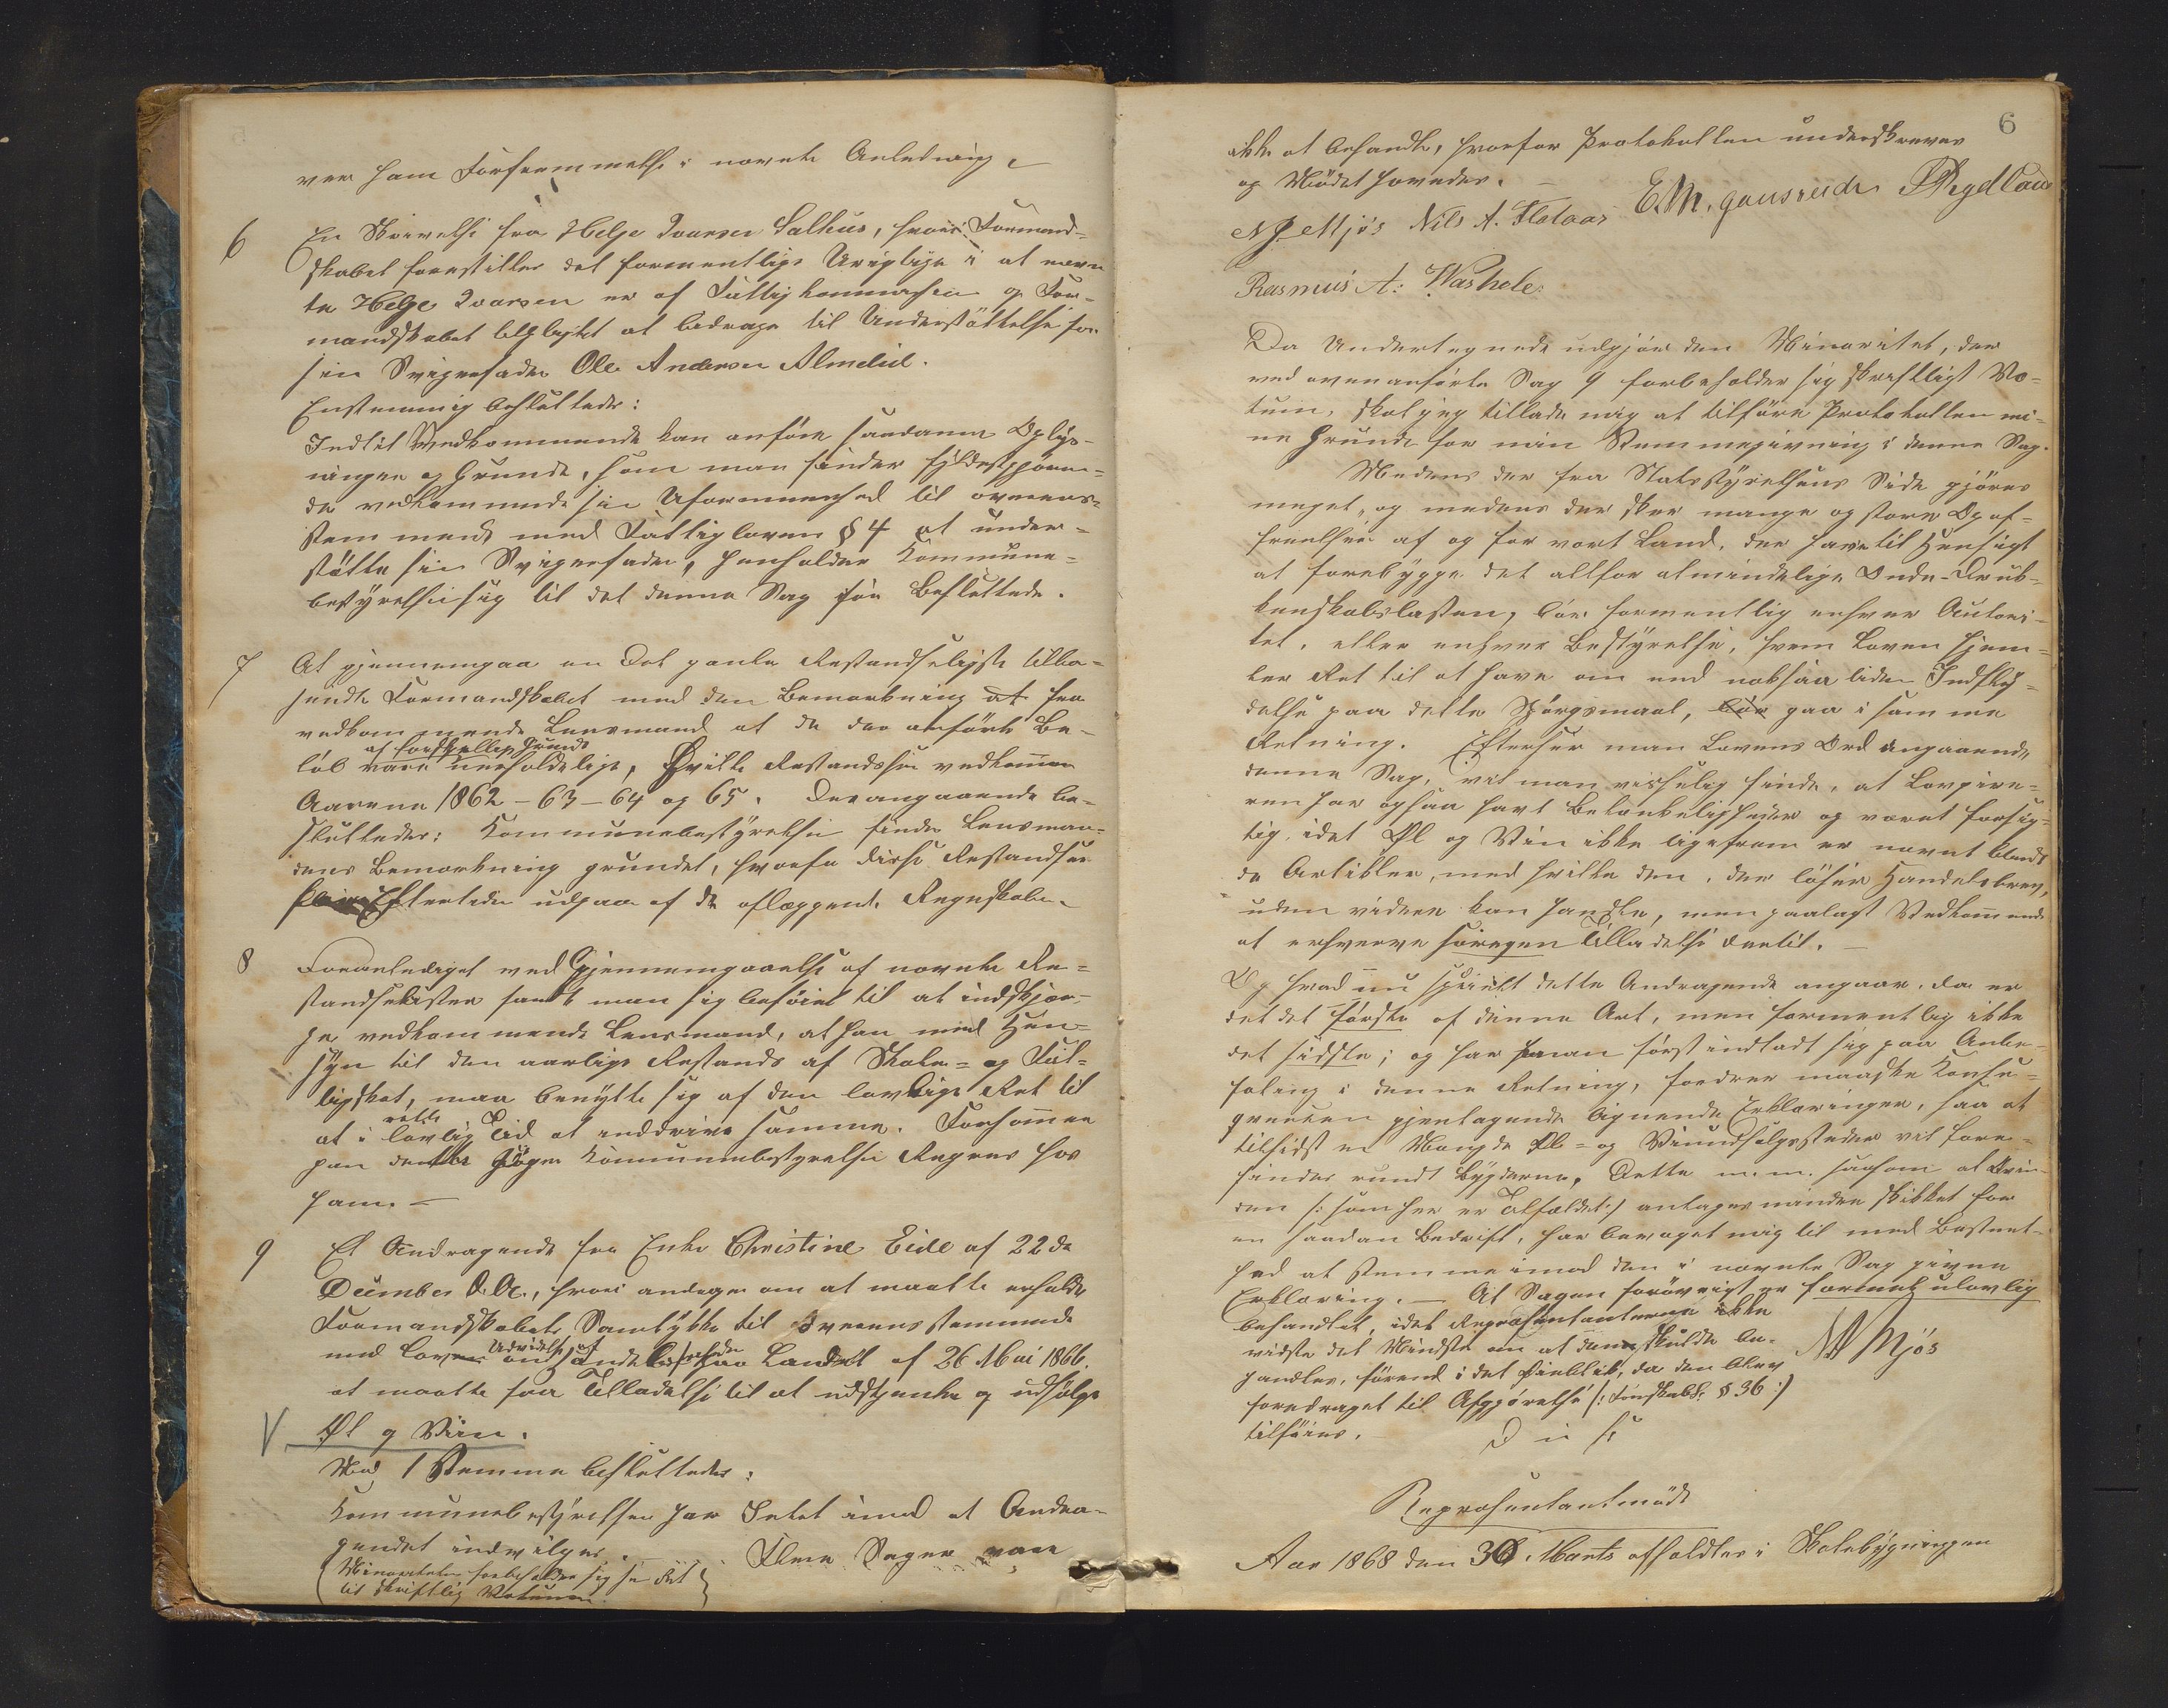 ver ham Forfremmelse i nævnte Anledning.
6 En Skrivelse fra Helge Ivarsen Salhus, hvori Formand-
skabet forestilles det formentlige Urigtige i at nævn
te Helge Ivarsen er af Fattigkommissionen og For-
mandskabet tilpligtet at bidrage til Understøttelse for
sin Svigerfader Ole Andersen Almelid.
Enstemmig besluttedes:
Indtil Vedkommende kan anføre saadanne Oplys-
ninger og Grunde, som man finder fyldestgjøren-
de vedkommende sin Uformuenhed til overens-
stemmende med Fattigloven § 4 at under-
støtte sin Svigerfader, henholder Kommune-
bestyrelsen sig til det denne Sag før Besluttede.
7 At gjennemgaa en Del gamle Restanceliste tilba-
sendte Formandskabet med den Bemærkning at fra
vedkommende Lensmand at de der anførte Be-
af forskjellige Grunde
løb vare uerholdelige, Hvilke Restancer vedkommer
Aarene 1862 - 63 - 64 og 65. Derangaaende be-
sluttedes: Kommunebestyrelsen finder Lensman-
dens Bemærkning grundet, hvorfor disse Restancer
Eftertiden udgaar af de aflæggende Regnskaber.
8 Foranlediget ved Gjennemgaaelse af nævnte Re-
stancelister fandt man sig beføiet til at indskjær-
pe vedkommende Lensmand, at han med Hen-
syn til den aarlige Restance af Skole- og Fat-
tigskat, maa benytte sig af den lovlige Ret til
rette
at i lovlig Tid at inddrive samme. Forsømmer
han dette søger Kommunebestyrelsen Regres hos
ham. -
9 Et Andragende fra Enke Christine Eide af 22de
December d. A., hvori andrages om at maatte erholde
Formandskabets Samtykke til overensstemmende
Udvidelse af
med Loven om Handelsfriheden paa Landet af 26 Mai 1866.
at maatte faa Tilladelse til at udskjenke og udsælge
V Øl og Viin.
Mod 1 Stemme besluttedes:
Kommunebestyrelsen har Intet imod at Andra-
gendet indvilges. - Flere Sager vare
(Minoriteten forbeholder sig sin Ret
til skriftlig Votum.)
6
ikke at behandle, hvorfor Protokollen underskreves
og Mødet hævedes. -
E. M. Gausereide
N J Mjös Nils A. Flataas
Rasmus A:
Da Undertegnede udgjør den Minoritet, der
ved ovenanførte Sag 9 forbeholder sig skriftligt Vo-
tum, skal jeg tillade mig at tilføre Protokollen mi-
ne Grunde for min Stemmegivning i denne Sag.
Medens der fra Statsstyrelsens Side gjøres
meget, og medens der sker mange og store Opof-
frelser af og for vort Land, der have til Hensigt
at forebygge det altfor almindelige Onde - Druk-
kenskabslasten, bør formentlig enhver Autori-
tet, eller enhver Bestyrelse, hvem Loven hjem-
ler Ret til at have om end nok saa liden Indfly-
delse paa dette Spørgsmaal, bør gaa i samme
Retning. Efterser man Lovens Ord angaaende
denne Sag, vil man visselig finde, at Lovgive-
ren har ogsaa havt Betænkeligheder og været forsig-
tig, idet Øl og Vin ikke ligefrem er nævnt blandt
de Artikler, med hvilke den, der løser Handelsbrev,
uden videre kan handle, men paalagt Vedkommende
at erhverve særegen Tilladelse dertil. -
Og hvad nu specielt dette Andragende angaar, da er
det det første af denne Art, men formentlig ikke
det sidste; og har man først indladt sig paa Anbe-
faling i denne Retning, fordrer maaske Konse-
quensen gjentagende lignende Erklæringer, saa at
tilsidst en Mængde Øl- og Viinudsalgssteder vil fore-
findes rundt Bygderne. Dette m. m. saasom at Kvin-
den (: som her er Tilfældet :) antages mindre skikket for
en saadan Bedrift, har bevæget mig til med Bestemt-
hed at stemme imod den i nævnte Sag givne
Erklæring. - At Sagen forøvrigt er formelt ulovlig
behandlet, idet Repræsentanterne ikke
vidste det Mindste om at den skulde be-
handles, førend i det Øieblik, da den blev
foredraget til Afgjørelse (: Formskabsl. § 36 :)
tilføies. -
N J Mjös
D u s.
Repræsentantmøde
Aar 1868 den 30 Marts afholdtes i Skolebygningen